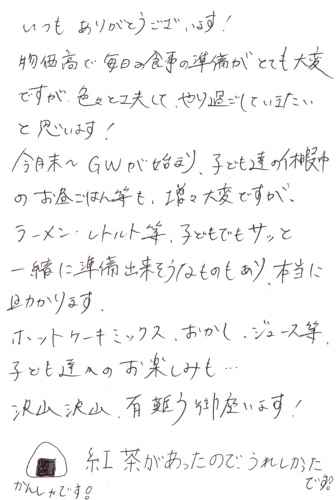 いつも ありがとうございます!
物価高で毎日の食事の準備がとても大変
ですが、色々と工夫して、やり過ごしていきたい
と思います!
今月末〜GWが始まり、子ども達の休暇中
のお昼ごはん等も、増々大変ですが、
ラーメン・レトルト等、子どもでもサッと
一緒に準備出来そうなものもあり、本当に
助かります。
ホットケーキミックス、おかし、ジュース等、
子ども達へのお楽しみも…
沢山沢山、有難う御座います!
紅茶があったので、うれしかった
です。
かんしゃです。